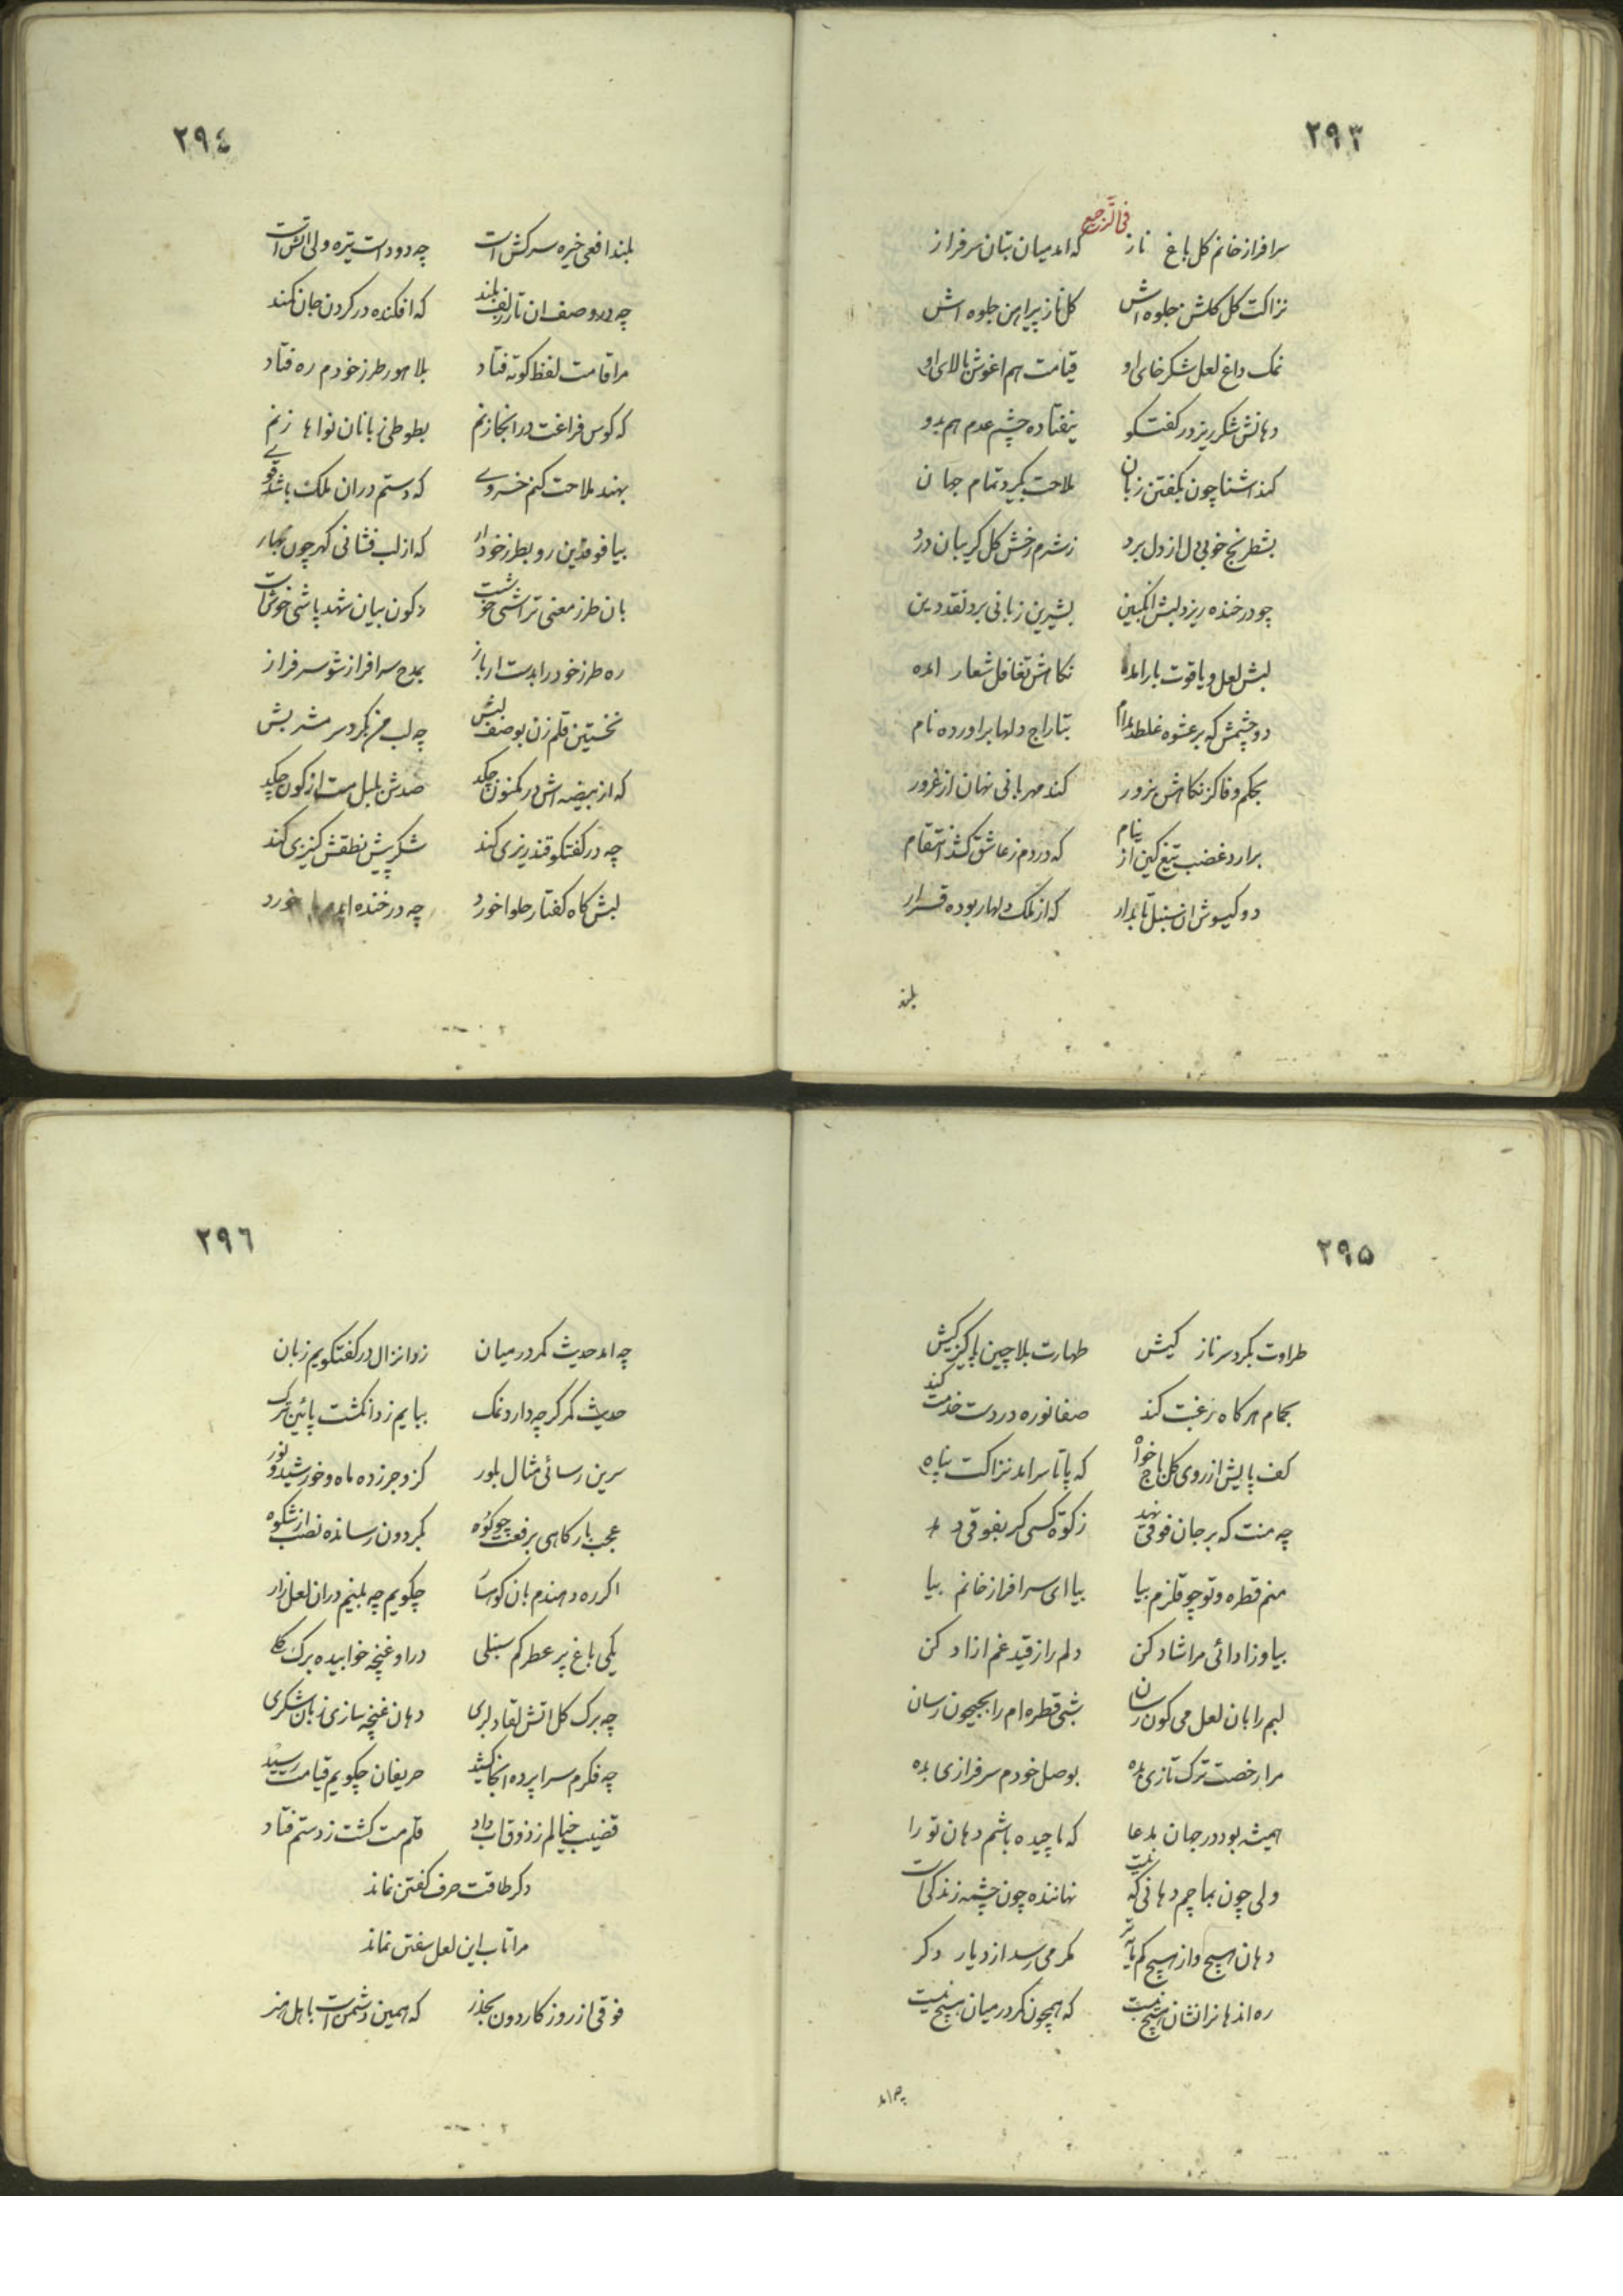 ٢٩٣
فی الترجیع
سرافراز خانم کل باغ ناز که امد میان بتان سرفراز
نزاکت کل کلشن جلوه اش کل ناز پیراهن جلوه اش
نمک داغ لعل شکرخای او قیامت هم اغوش بالای او
دهانش شکر ریز در کفتکو نیفتاده چشم عدم هم بدو
کند اشنا چون بکفتن زبان ملاحت بکیرد تمام جهان
بشطرنج خوبی دل از دل برد ز شرم رخش کل کریبان درد
چو در خنده ریزد لبش انکبین بشیرین زبانی برد نقد دین
لبش لعل و یاقوت بار امده نکاهش تغافل شعار امده
دو چشمش که بر عشوه غلطد مدام بتاراج دلها براورده نام
بحکم وفا کر نکاهش بزور کند مهربانی نهان از غرور
برارد غضب تیغ کین از نیام که در دم ز عاشق کشد انتقام
دو کیسوش ان سنبل تابدار که از ملک دلها ربوده قرار
بلند
٢٩٤
بلند افعی خیره سرکش است چه دود است تیره ولی اتش است
چه در وصف ان تار زلف بلند که افکنده در کردن جان کمند
مرا قامت لفظ کوته فتاد بلاهور طرز خودم ره فتاد
که کوس فراغت در انجا زنم بطوطی زبانان نواها زنم
بهند ملاحت کنم خسروے که دستم دران ملک باشد قوے
بیا فوقی این رو بطرز خود ار که از لب فشانی کهر چون بهار
بان طرز معنی تراشی خوشست دکون بیان شهد پاشی خوش است
ره طرز خود را بدست ار باز بمدح سرافراز شو سرفراز
نخستین قلم زن بوصف لبش چه لب من بکرد سر مشربش
که از بیضه اش در مکنون چکد صدش بلبل مست از کون چکد
چه در کفتکو قندریزی کند شکر پیش نطقش کنیزی کند
لبش کاه کفتار حلوا خورد چه در خنده امد خورد
٢٩٥
طراوت بکرد سر ناز کیش طهارت بلاچین پاکیزکیش
بحمام هرکاه رغبت کند صفا نوره در دست خدمت کند
کف پایش از روی کل باج خواه که پا تا سر امد نزاکت پناه
چه منت که بر جان فوقی نهد زکوة کسی کر بفوقی دهد
منم قطره و تو چو قلزم بیا بیا ای سرافراز خانم بیا
بیا وز ادائی مرا شاد کن دلم را ز قید غم ازاد کن
لبم را بان لعل می کون رسان بشی قطره ام را بجیحون رسان
مرا رخصت ترک تازی بده بوصل خودم سرفرازی بده
همیشه بود در جهان مدعا که ماچیده باشم دهان تو را
ولی چون بماچم دهانی که نیست نهاننده چون چشمه زندکیست
دهان هیچ و از هیچ کم پایه تر کمر می رسد از دیار دکر
ره اندهانرا نشان هیچ نیست که همچون کمر در میان هیچ نیست
چه امد
٢٩٦
چه امد حدیث کمر در میان زد انزال در کفتکویم زبان
حدیث کمر کرچه دارد نمک بیایم زد انکشت پائین ترک
سرین رسائی مثال بلور کزو جر زده ماه و خورشید و نور
عجب بارکاهی برفعت چو کوه بکردون رسانده نصب از شکوه
اکر ره دهندم بان کوهسار چکویم چه بینم دران لعل زار
یکی باغ پر عطر کم سنبلی در او غنچه خوابیده برک کلے
چه برک کل اتش لقا دلبری دهان غنچه سازی زبان شکری
چه فکرم سراپرده انجا کشید حریفان چکویم قیامت رسید
قضیب خیالم ز ذوق اب داد قلم مست کشت ز دستم فتاد
دکر طاقت حرف کفتن نماند
مرا تاب این لعل سفتن نماند
فوقی از روزکار دون بحذر که همین دشمن است با اهل هنر